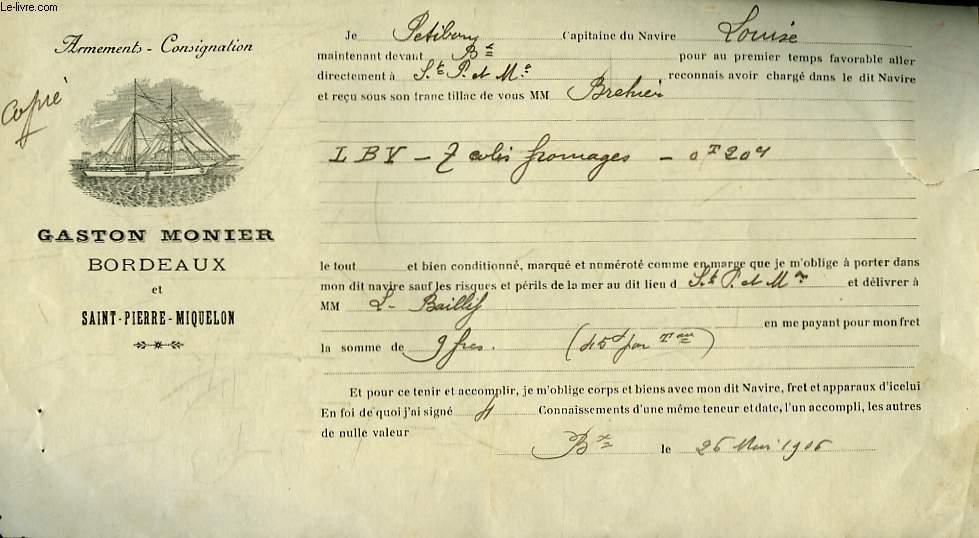 Le-livre.com
Armements - Consignation
Copié
GASTON MONIER
BORDEAUX
et
SAINT-PIERRE-MIQUELON
Je Petibon Capitaine du Navire Louise
maintenant devant Bx pour au premier temps favorable aller
directement à St. P. et M. reconnais avoir chargé dans le dit Navire
et reçu sous son franc tillac de vous MM Brehier
LBV - 7 colis fromages - 0T204
le tout et bien conditionné, marqué et numéroté comme en marge que je m'oblige à porter dans
mon dit navire sauf les risques et périls de la mer au dit lieu d St. P. et M. et délivrer à
MM L. Baillif
en me payant pour mon fret
la somme de 9 frcs. (45 par Tau)
Et pour ce tenir et accomplir, je m'oblige corps et biens avec mon dit Navire, fret et apparaux d'icelui
En foi de quoi j'ai signé 4 Connaissements d'une même teneur et date, l'un accompli, les autres
de nulle valeur
Bx le 26 Mai 1906